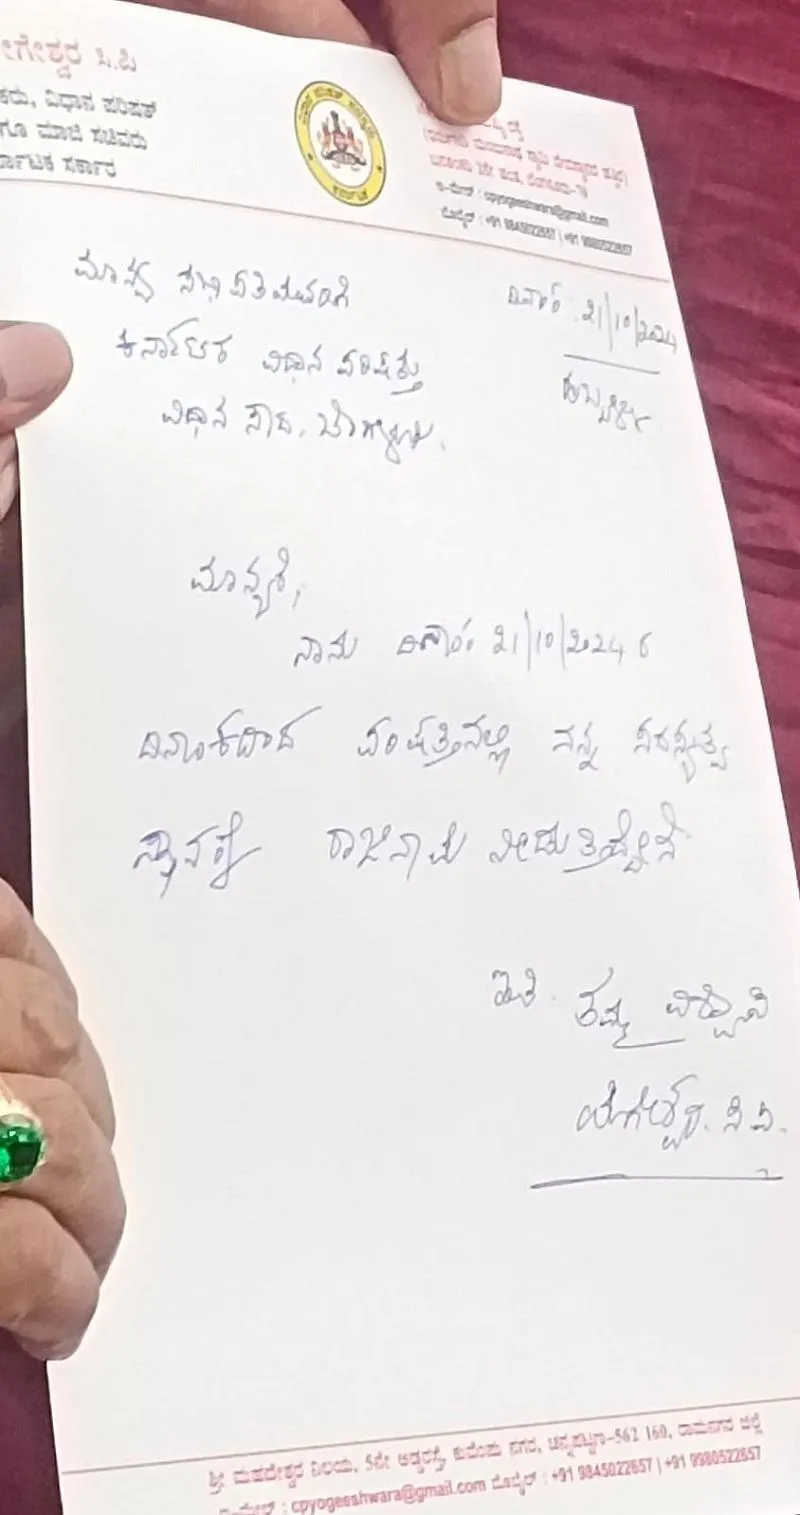 ಗೇಶ್ವರ ಸಿ.ಪಿ
ವಿಧಾನ ಪರಿಷತ್
ಮಾಜಿ ಸಚಿವರು
ಸರ್ಕಾರ
ಇ-ಮೇಲ್ : cpyogeeshwara@gmail.com
ಮೊಬೈಲ್ : +91 9845022657 | +91 9980522657
ದಿನಾಂಕ : 21/10/2024
ಹುಬ್ಬಳ್ಳಿ
ಮಾನ್ಯ ಸಭಾಪತಿಯವರಿಗೆ
ಕರ್ನಾಟಕ ವಿಧಾನ ಪರಿಷತ್ತು
ವಿಧಾನ ಸೌಧ, ಬೆಂಗಳೂರು.
ಮಾನ್ಯರೆ,
ನಾನು ದಿನಾಂಕ 21/10/2024 ರ
ಪರಿಷತ್ತಿನಲ್ಲಿ ನನ್ನ ಸದಸ್ಯತ್ವ
ಸ್ಥಾನಕ್ಕೆ ರಾಜಿನಾಮೆ ನೀಡುತ್ತಿದ್ದೇನೆ
ಇತಿ. ತಮ್ಮ ವಿಶ್ವಾಸಿ
ಯೋಗೇಶ್ವರ. ಸಿ.ಪಿ.
ಶ್ರೀ ಮಹದೇಶ್ವರ ನಿಲಯ, 5ನೇ ಅಡ್ಡರಸ್ತೆ, ಕುವೆಂಪು ನಗರ, ಚನ್ನಪಟ್ಟಣ-562 160, ರಾಮನಗರ ಜಿಲ್ಲೆ
ಇ-ಮೇಲ್ : cpyogeeshwara@gmail.com ಮೊಬೈಲ್ : +91 9845022657 | +91 9980522657